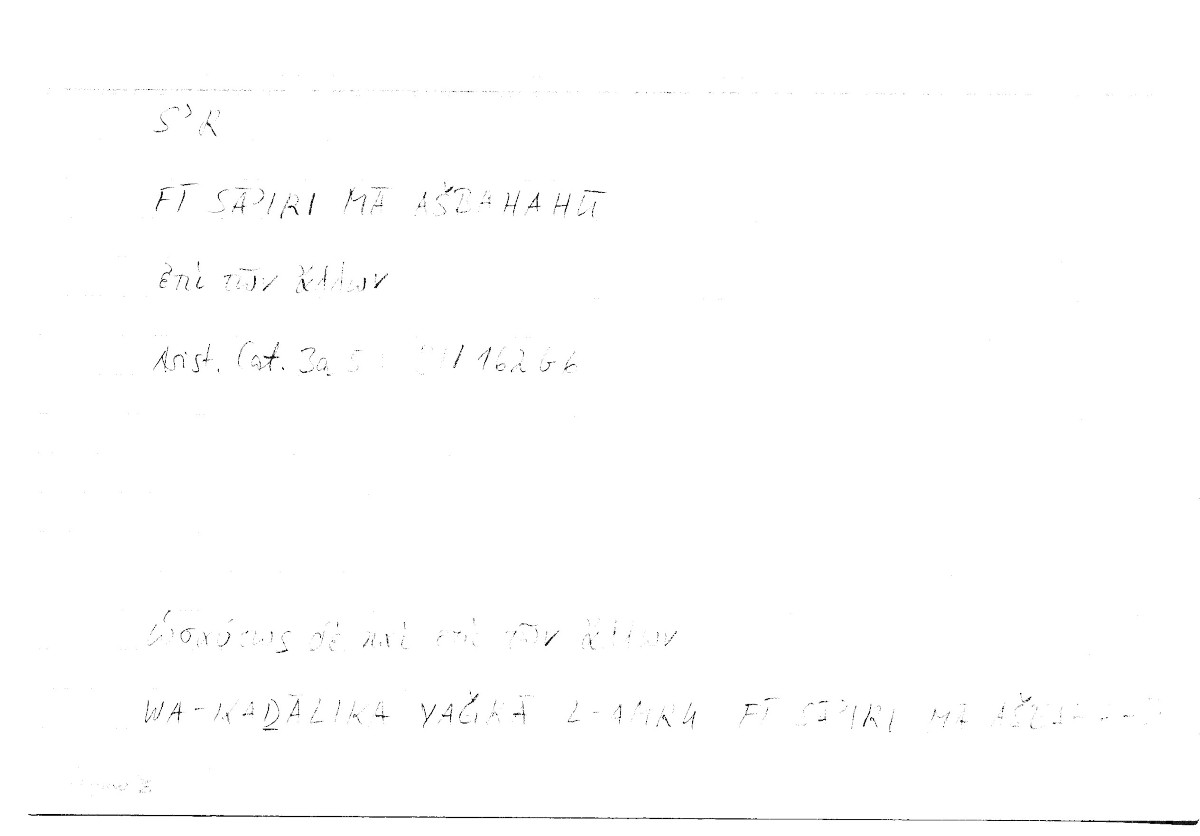 SʾR
FĪ SĀʾIRI MĀ AŠBAHAHŪ
ἐπὶ τῶν ἄλλων
Arist. Cat. 3a 5 / 162 G 6
ὡσαύτως δὲ καὶ ἐπὶ τῶν ἄλλων
WA-KAḎĀLIKA YAǦRĪ L-AMRU FĪ SĀʾIRI MĀ AŠBAHAHŪ